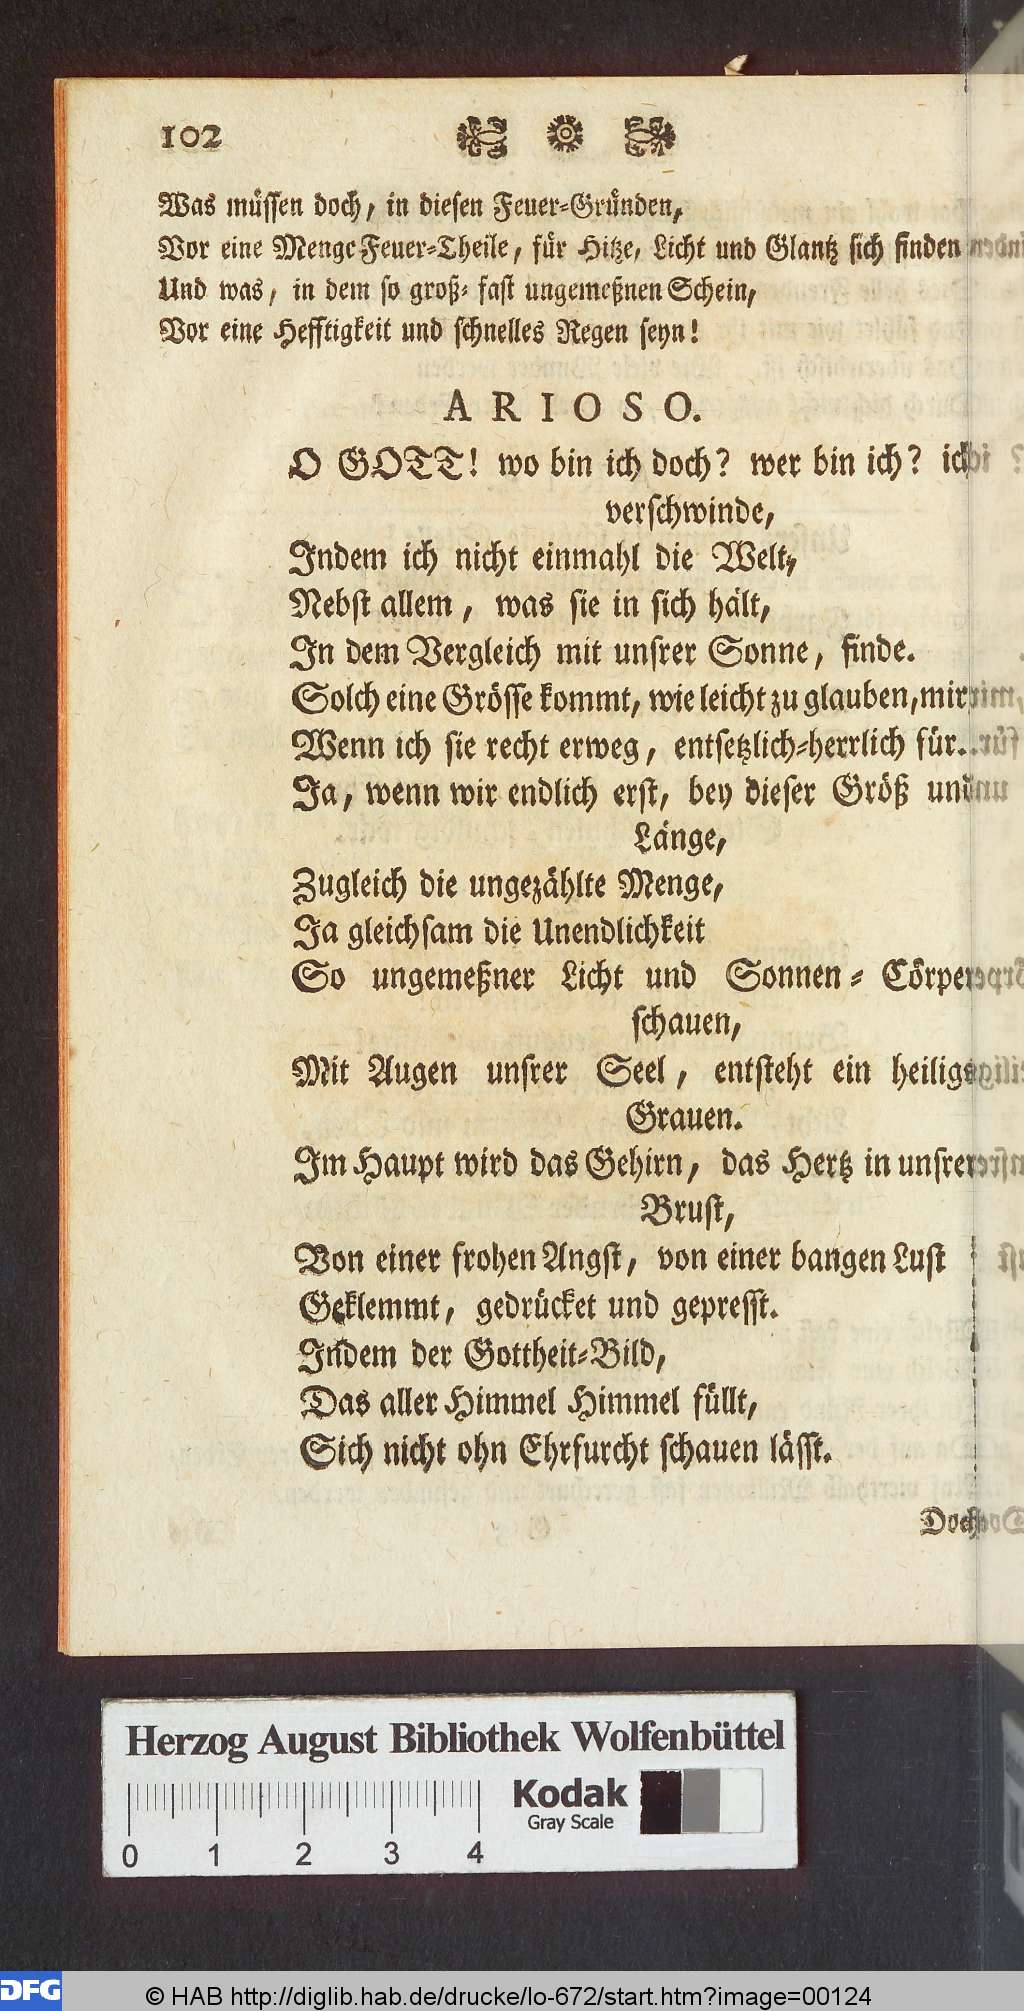 102
Was müssen doch, in diesen Feuer-Gründen,
Vor eine Menge Feuer-Theile, für Hitze, Licht und Glantz sich finden
Und was, in dem so groß- fast ungemeßnen Schein,
Vor eine Hefftigkeit und schnelles Regen seyn!
ARIOSO.
O GOTT! wo bin ich doch? wer bin ich? ich
verschwinde,
Indem ich nicht einmahl die Welt,
Nebst allem, was sie in sich hält,
In dem Vergleich mit unsrer Sonne, finde.
Solch eine Grösse kommt, wie leicht zu glauben, mir
Wenn ich sie recht erweg, entsetzlich-herrlich für.
Ja, wenn wir endlich erst, bey dieser Größ und
Länge,
Zugleich die ungezählte Menge,
Ja gleichsam die Unendlichkeit
So ungemeßner Licht und Sonnen-Cörper
schauen,
Mit Augen unsrer Seel, entsteht ein heiligs
Grauen.
Im Haupt wird das Gehirn, das Hertz in unsrer
Brust,
Von einer frohen Angst, von einer bangen Lust
Geklemmt, gedrücket und gepresst.
Indem der Gottheit-Bild,
Das aller Himmel Himmel füllt,
Sich nicht ohn Ehrfurcht schauen lässt.
Doch
Herzog August Bibliothek Wolfenbüttel
Kodak
Gray Scale
0 1 2 3 4
DFG © HAB http://diglib.hab.de/drucke/lo-672/start.htm?image=00124